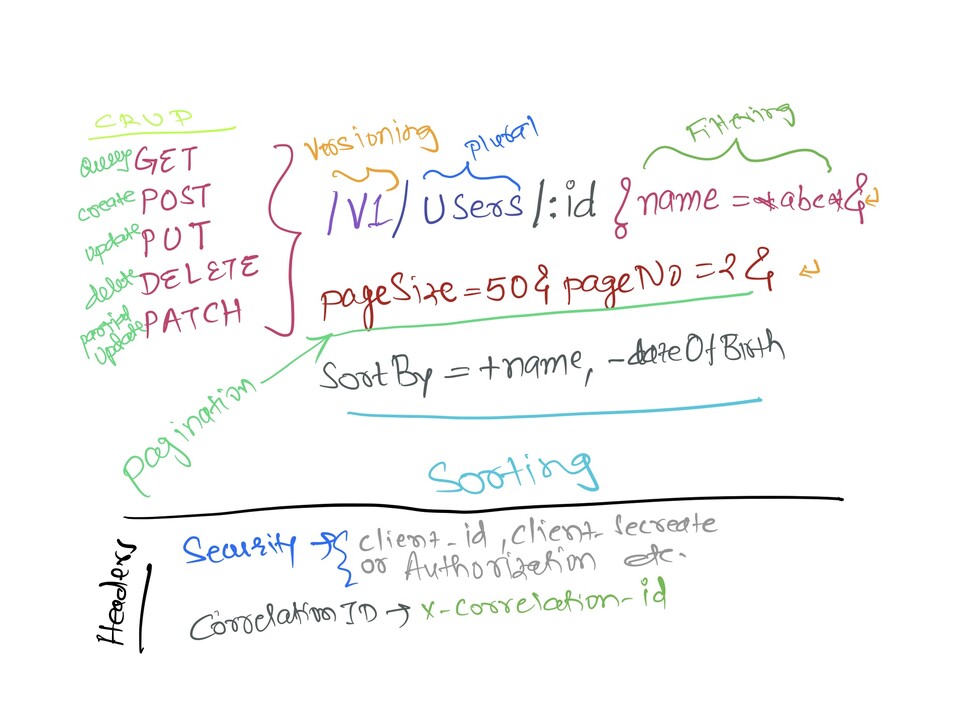 CRUD
Query GET
create POST
update PUT
delete DELETE
partial update PATCH
Versioning
plural
Filtering
/V1/ Users /:id { name = *abc* & ↵
pageSize = 50 & pageNo = 2 & ↵
SortBy = +name, -dateOfBirth
pagination
Sorting
Headers
Security → { client-id, client-secreate
or Authorization etc.
Correlation ID → x-correlation-id